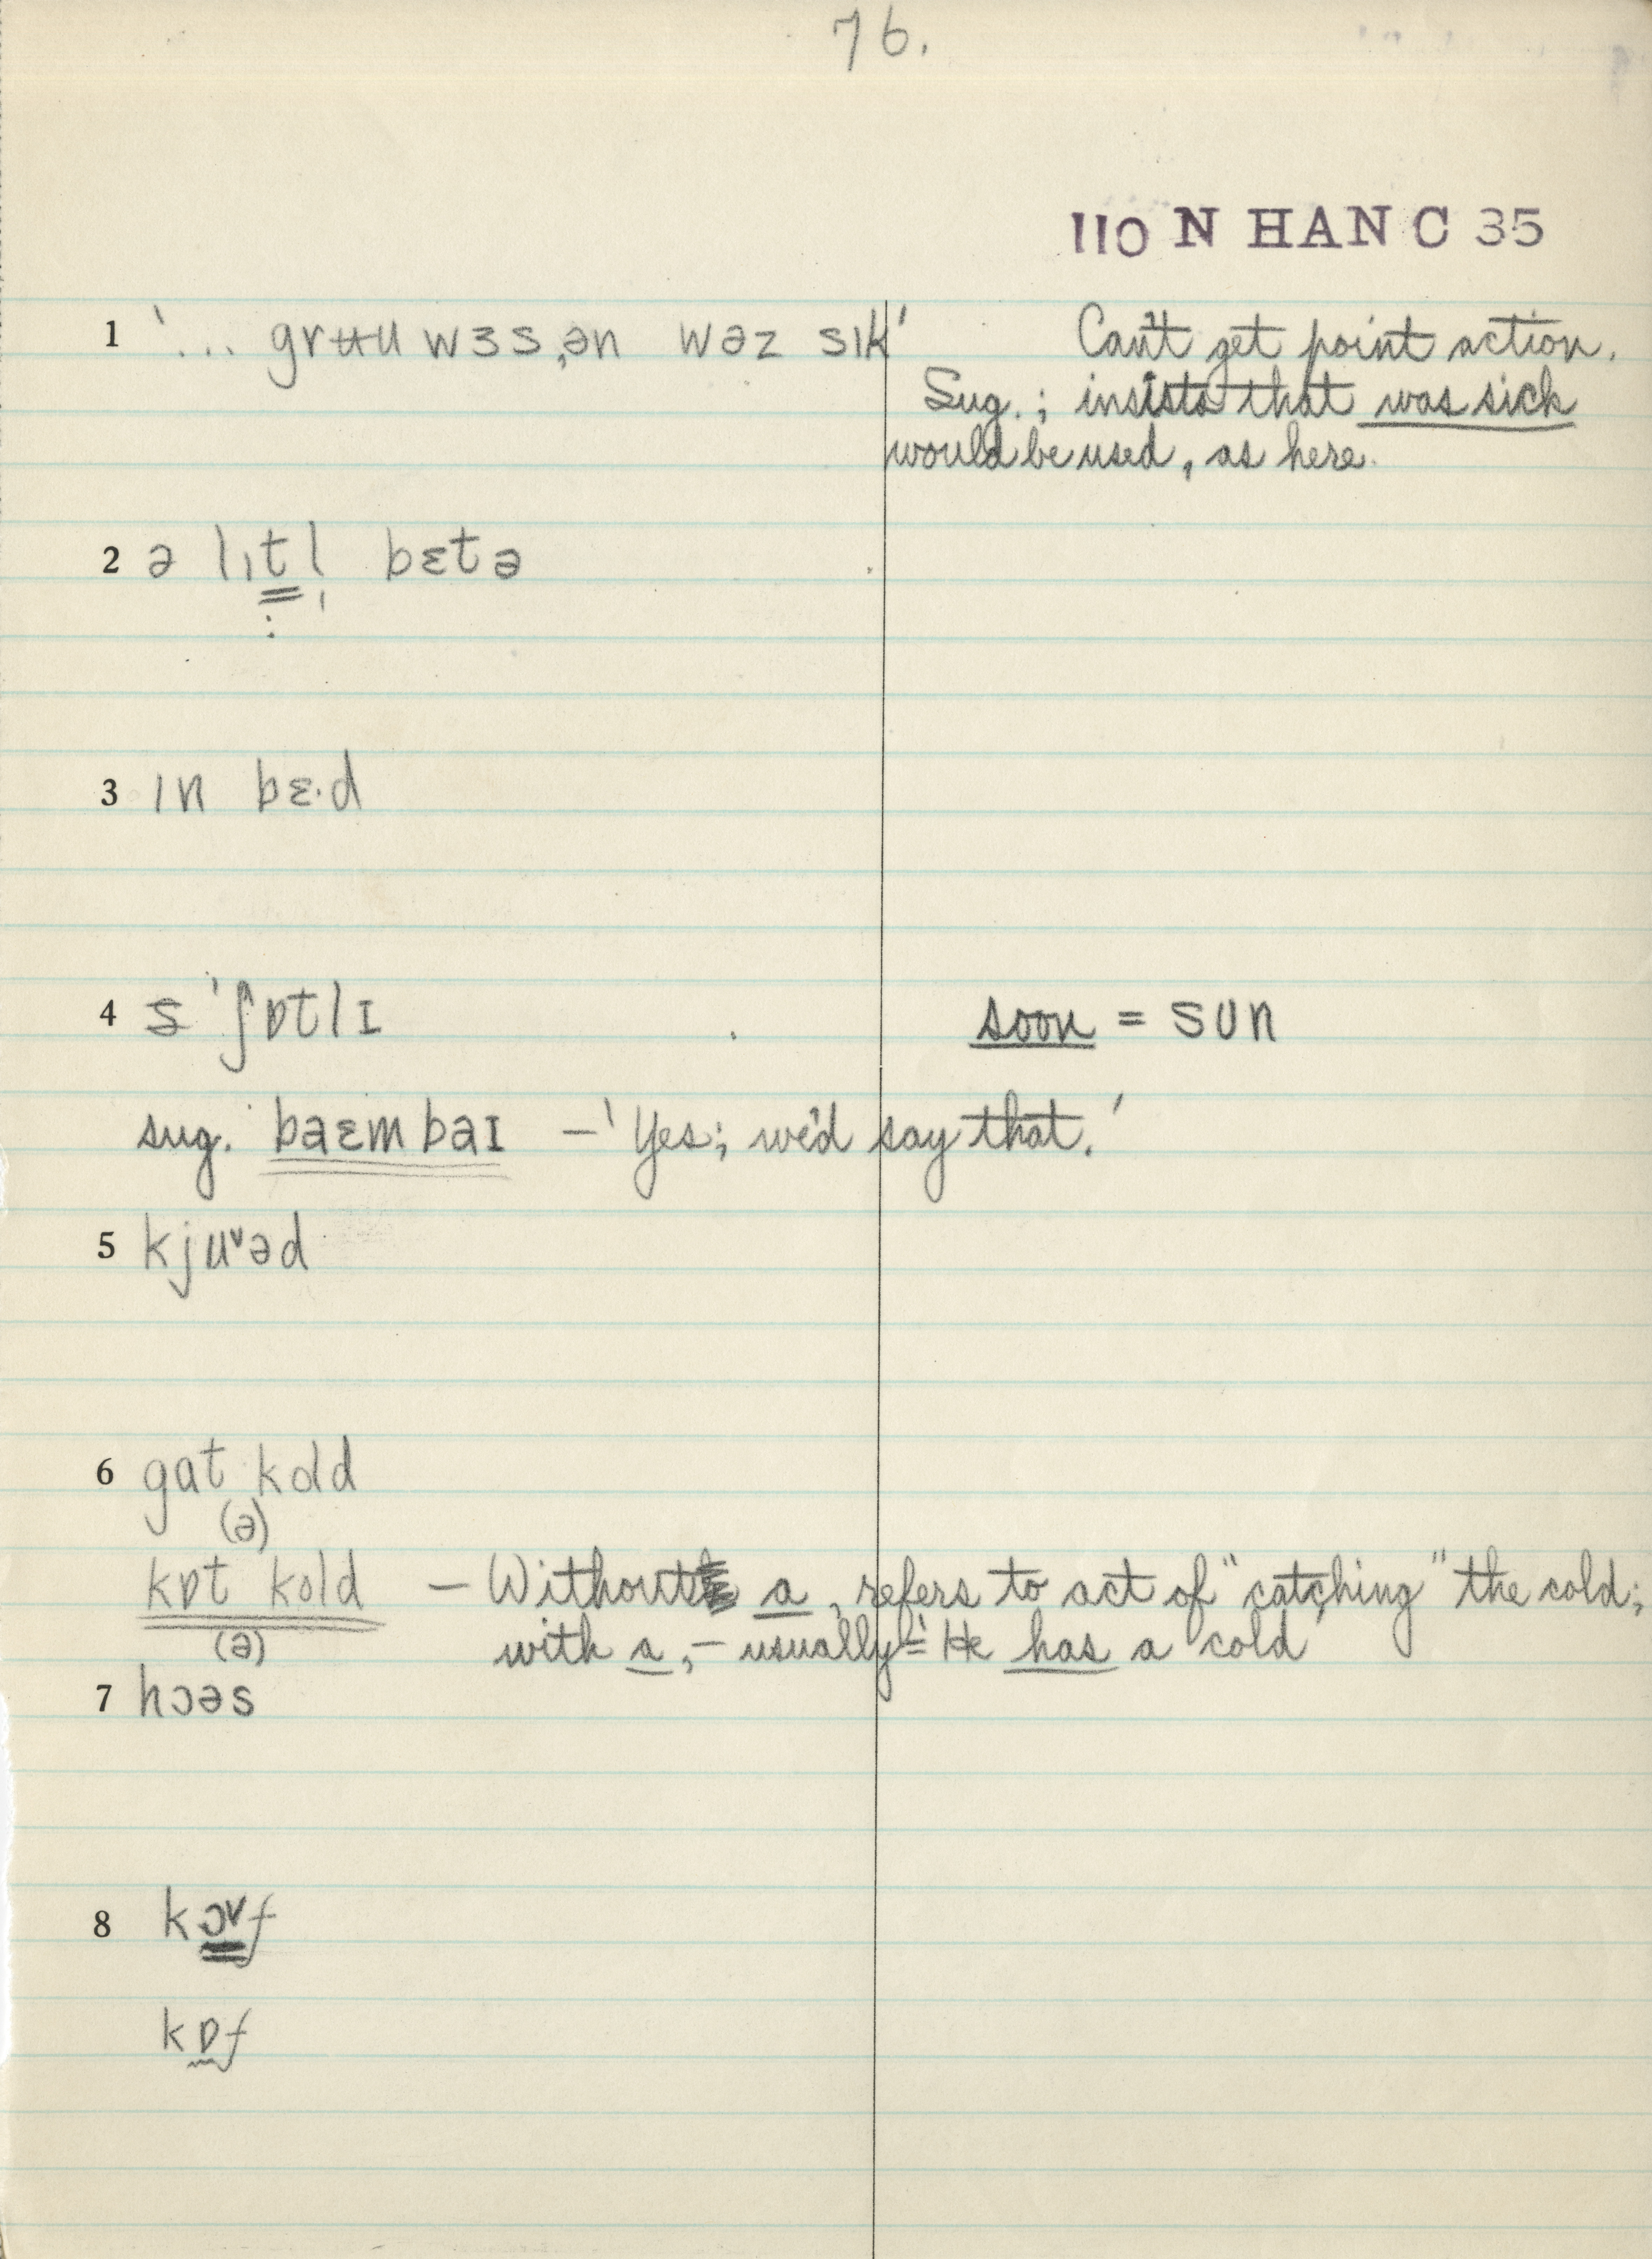 76.
110 N HAN C 35
1 '... grʉu wɜs,ən wəz sɪk' Can't get point action.
Sug.; insists that was sick
would be used, as here.
2 ə lɪtl̩ bɛtə
3 ɪn bɛ·d
4 s 'ʃɒtlɪ soon = sun
sug. baɛm baɪ – 'Yes; we'd say that.'
5 kjuᵛəd
6 gat kold
(ə)
kɒt kold – Without a, refers to act of "catching" the cold;
(ə) with a, – usually = 'He has a cold'
7 hɔəs
8 kɔᵛf
kɒf